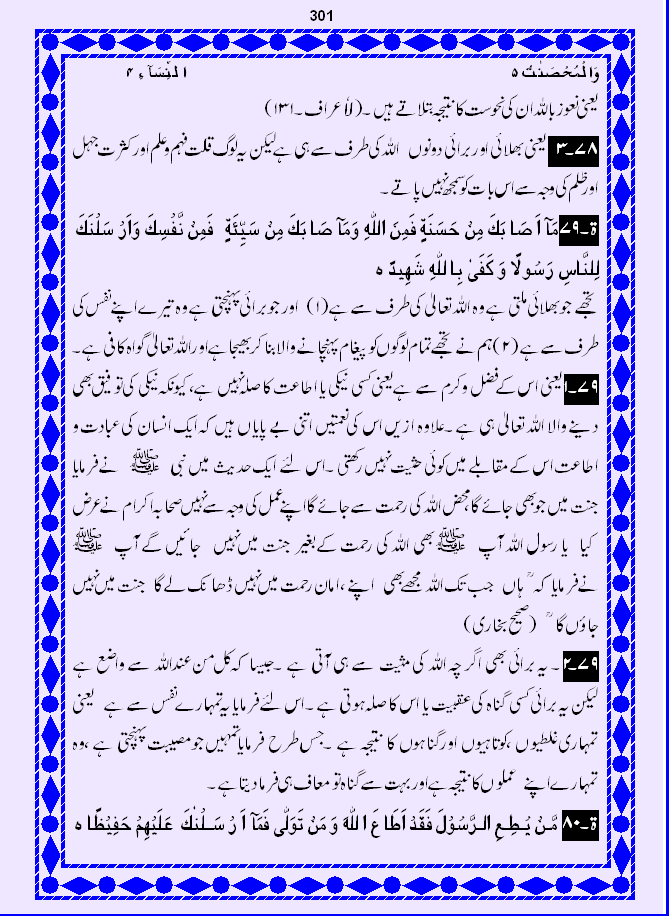 301
وَالْمُحْصَنٰتُ ۵ النِّسَآء ۴
یعنی نعوز باللہ ان کی نحوست کا نتیجہ بتلاتے ہیں۔(لأعراف۔۱۳۱)
۷۸۔۳ یعنی بھلائی اور برائی دونوں اللہ کی طرف سے ہی ہے لیکن یہ لوگ قلت فہم و علم اور کثرت جہل
اور ظلم کی وجہ سے اس بات کو سمجھ نہیں پاتے۔
ۃ۔۷۹ مَآ اَصَابَكَ مِنْ حَسَنَةٍ فَمِنَ اللّٰهِ وَمَآ صَابَكَ مِنْ سَيِّئَةٍ فَمِنْ نَّفْسِكَ وَاَرْسَلْنٰكَ
لِلنَّاسِ رَسُوْلًا وَكَفٰى بِاللّٰهِ شَهِيْدًا ہ
تجھے جو بھلائی ملتی ہے وہ اللہ تعالیٰ کی طرف سے ہے (۱) اور جو برائی پہنچتی ہے وہ تیرے اپنے نفس کی
طرف سے ہے (۲) ہم نے تجھے تمام لوگوں کو پیغام پہنچانے والا بنا کر بھیجا ہے اور اللہ تعالیٰ گواہ کافی ہے۔
۷۹۔۱ یعنی اس کے فضل و کرم سے ہے یعنی کسی نیکی یا اطاعت کا صلہ نہیں ہے، کیونکہ نیکی کی توفیق بھی
دینے والا اللہ تعالیٰ ہی ہے۔ علاوہ ازیں اس کی نعمتیں اتنی بے پایاں ہیں کہ ایک انسان کی عبادت و
اطاعت اس کے مقابلے میں کوئی حثیت نہیں رکھتی۔ اس لئے ایک حدیث میں نبی ﷺ نے فرمایا
جنت میں جو بھی جائے گا، محض اللہ کی رحمت سے جائے گا اپنے عمل کی وجہ سے نہیں صحابہ اکرام نے عرض
کیا یا رسول اللہ آپ ﷺ بھی اللہ کی رحمت کے بغیر جنت میں نہیں جائیں گے آپ ﷺ
نے فرمایا کہ " ہاں جب تک اللہ مجھے بھی اپنے، امان رحمت میں نہیں ڈھانک لے گا جنت میں نہیں
جاؤں گا " (صحیح بخاری)
۷۹۔۲۔ یہ برائی بھی اگرچہ اللہ کی مثیت سے ہی آتی ہے۔ جیسا کہ کل من عند اللہ سے واضع ہے
لیکن یہ برائی کسی گناہ کی عقوبت یا اس کا صلہ ہوتی ہے۔ اس لئے فرمایا یہ تمہارے نفس سے ہے یعنی
تمہاری غلطیوں، کوتاہیوں اور گناہوں کا نتیجہ ہے۔ جس طرح فرمایا تمہیں جو مصیبت پہنچتی ہے، وہ
تمہارے اپنے عملوں کا نتیجہ ہے اور بہت سے گناہ تو معاف ہی فرما دیتا ہے۔
ۃ۔۸۰ مَّنْ يُطِعِ الرَّسُوْلَ فَقَدْ اَطَاعَ اللّٰهَ وَمَنْ تَوَلّٰى فَمَآ اَرْسَلْنٰكَ عَلَيْهِمْ حَفِيْظًا ہ